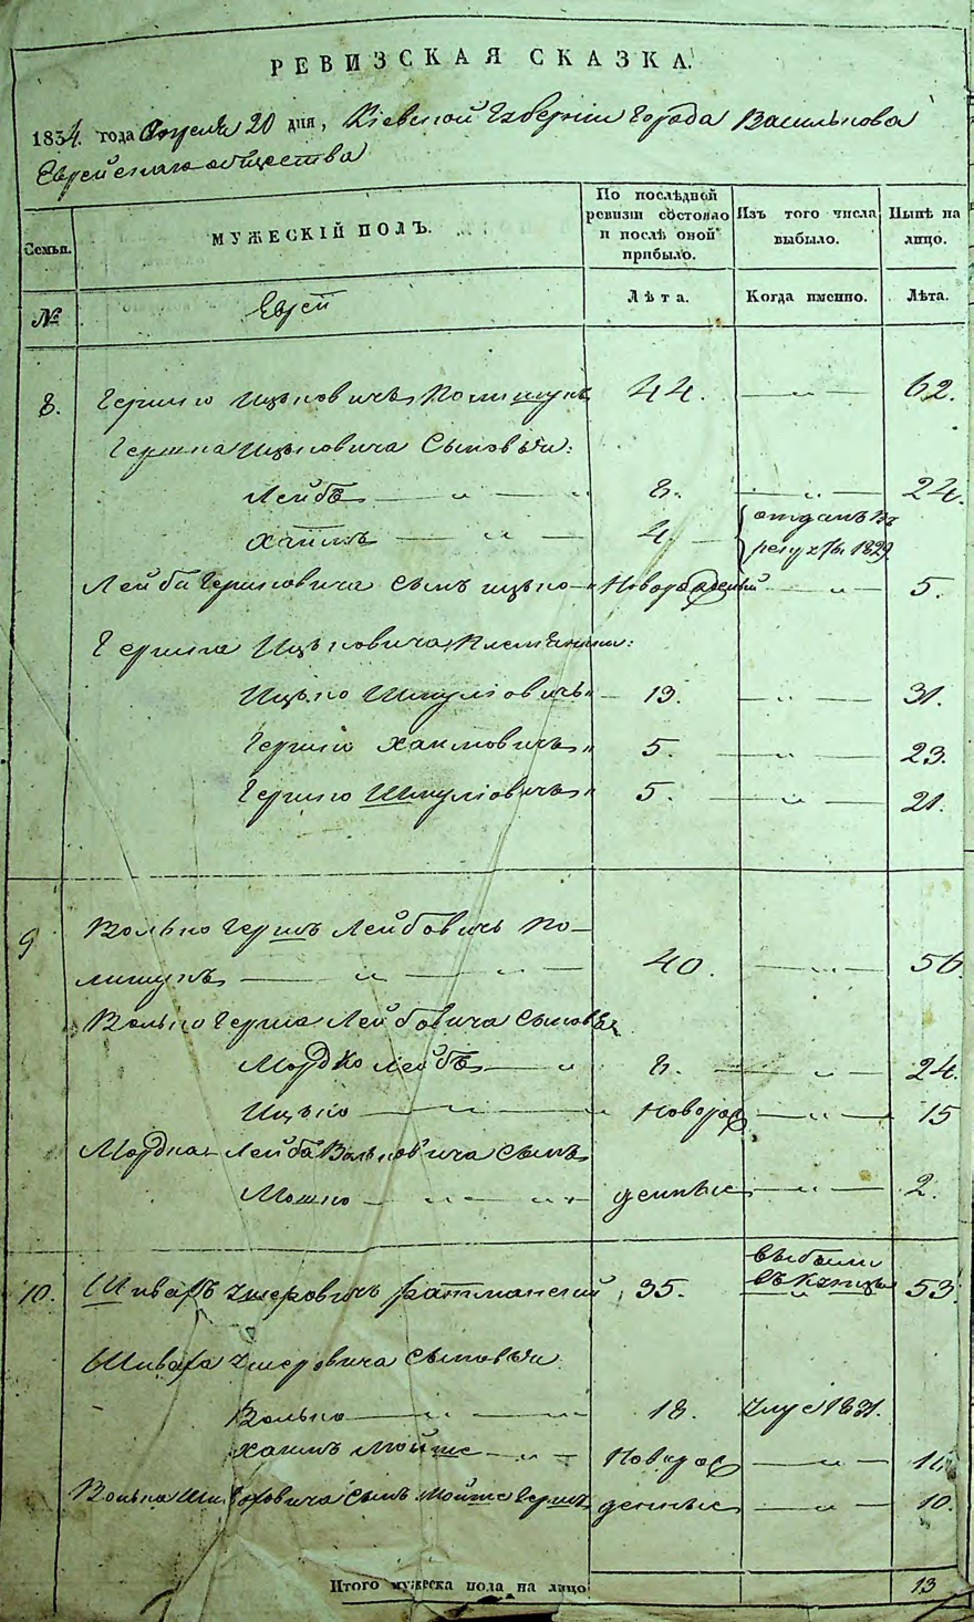 РЕВИЗСКАЯ СКАЗКА.
1834. года Апреля 20 дня, Кіевской Губерніи Города Василькова
Еврейскаго общества
Семьи.
МУЖЕСКІЙ ПОЛЪ.
По послѣдной ревизіи состояло и послѣ оной прибыло.
Изъ того числа выбыло.
Нынѣ на лицо.
№
Еврей
Лѣта.
Когда именно.
Лѣта.
8. Гершко Ицковичъ Полищукъ 44. — „ — 62.
Гершка Ицковича Сыновья:
Лейба — „ — „ 8. — „ — 24.
Хаимъ — „ — 4. — отданъ въ рекруты 1829
Лейби Гершковича сынъ ицко — „ Новорожденный — „ — 5.
Гершка Ицковича Племянники:
Ицко Шмуліовичъ „ — 13. — „ — 31.
Гершко Хаимовичъ „ 5. — „ — 23.
Гершко Шмуліовичъ „ 5. — „ — 21.
9 Волько Гершъ Лейбовичъ По-
лищукъ — „ — „ — 40. — „ — 56.
Волько Герша Лейбовича сыновья
Мордко Лейба — „ 8. — „ — 24.
Ицко — „ — „ Новорож — „ — 15
Мордка Лейба Вольковича сынъ
Мошко — „ — „ денные — „ — 2.
10. Шивахъ Ушеровичъ Ратманскій 35. 53.
Шиваха Ушеровича Сыновья
Волько — „ — 18. 1831.
Хаимъ Мойше — „ — Новорож — „ —
Волька Шиваховича сынъ Мойше Гершъ денные — „ — 10.
Итого мужеска пола на лицо 13